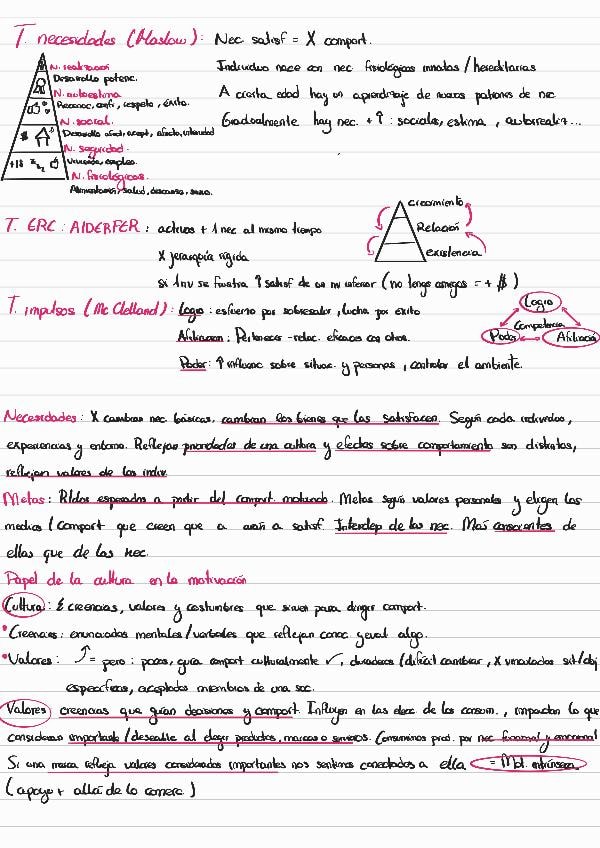 T. necesidades (Maslow): Nec satisf = X comport.
N. realización
Desarrollo potenc.
N. autoestima
Reconoc, confi, respeto, éxito.
N. social.
Desarrollo afect, acept, afecto, intimidad
N. seguridad.
Vivienda, empleo.
N. fisiológicas
Alimentación, salud, descanso, sexo.
Individuo nace con nec fisiológicas innatas / hereditarias
A cierta edad hay un aprendizaje de nuevos patrones de nec
Gradualmente hay nec. + ↑: sociales, estima, autorealiz...
T. ERC: ALDERFER: activas + 1 nec al mismo tiempo
X jerarquía rígida
Si 1 nv se frustra ↑ satisf de un nv inferior (no tengo amigos = + $)
crecimiento
Relación
existencia
T. impulsos (Mc Clelland): Logro: esfuerzo por sobresalir, lucha por éxito
Afiliacion: Pertenecer - relac. eficaces con otros.
Poder: ↑ influenc sobre situac. y personas, controlar el ambiente.
Logro
Competencia
Poder
Afiliación
Necesidades: X cambian nec básicas, cambian los bienes que las satisfacen. Según cada individuo,
experiencias y entorno. Reflejan prioridades de una cultura y efectos sobre comportamiento son distintos,
reflejan valores de los indiv.
Metas: Rtdos esperados a partir del comport. motivado. Metas según valores personales y eligen los
medios / comport que creen que a satisf. Interdep de las nec. Más conscientes de
ellas que de las nec.
Papel de la cultura en la motivación
Cultura: Σ creencias, valores y costumbres que sirven para dirigir comport.
• Creencias: enunciados mentales/verbales que reflejan conoc. y eval algo.
• Valores: = pero: pocos, guía comport culturalmente ✓, duraderos / difícil cambiar, X vinculados sit/obj
específicos, aceptados miembros de una soc.
Valores creencias que guían decisiones y comport. Influyen en las elec. de los consum., impactan lo que
consideran importante / deseable al elegir productos, marcas o servicios. Consumimos prod. por nec funcional y emocional
Si una marca refleja valores considerados importantes nos sentimos conectados a ella = Mot. intrínseca
(apoyo + allá de lo comerc.)